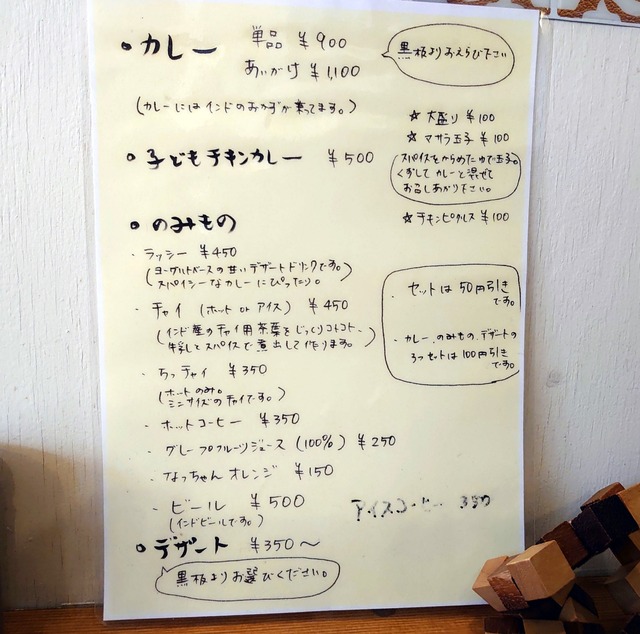 ・カレー 単品 ¥900
あいがけ ¥1,100
黒板よりおえらび下さい
(カレーにはインドのおかずが乗ってます。)
☆ 大盛り ¥100
☆ マサラ玉子 ¥100
スパイスをからめたゆで玉子。
くずしてカレーと混ぜて
お召しあがり下さい。
☆ チキンピクルス ¥100
・子どもチキンカレー ¥500
・のみもの
・ラッシー ¥450
(ヨーグルトベースの甘いデザートドリンクです。
スパイシーなカレーにぴったり。)
・チャイ (ホット or アイス) ¥450
(インド産のチャイ用茶葉をじっくりコトコト、
牛乳とスパイスで煮出して作ります。)
・ちっチャイ ¥350
(ホットのみ。
ミニサイズのチャイです。)
・ホットコーヒー ¥350
・グレープフルーツジュース (100%) ¥250
・なっちゃん オレンジ ¥150
・ビール ¥500
(インドビールです。)
アイスコーヒー 350
・セットは50円引き
です。
・カレー、のみもの、デザートの
3つセットは100円引き
です。
・デザート ¥350〜
黒板よりお選びください。